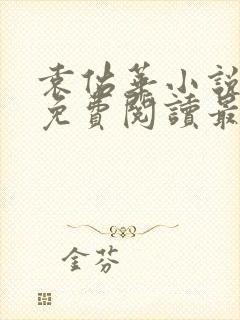 袁佔華小說
免費閱讀最
金芬